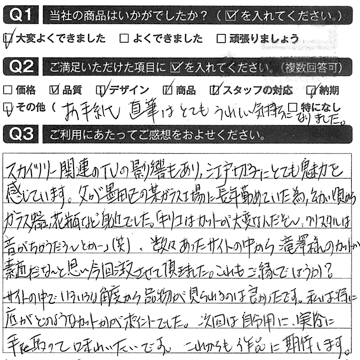 Q1 当社の商品はいかがでしたか？（☑を入れてください。）
☑大変よくできました □よくできました □頑張りましょう
Q2 ご満足いただけた項目に☑を入れてください。（複数回答可）
□価格 ☑品質 ☑デザイン ☑商品 ☑スタッフの対応 ☑納期
☑その他（お手紙 直筆はとてもうれしい気持ちになりました。 □特になし
Q3 ご利用にあたってご感想をおよせください。
スカイツリー関連のTVの影響もあり、江戸切子にとても魅力を
感じています。父が墨田区の某ガラス工場に長年勤めていた為、幼い頃から
ガラス器、花瓶など身近でした。キリコはカットが大変なんだぞ、クリスタルは
音がちがうだろうとか…（笑）。数々あったサイトの中から滝澤様のカットが
素適だなぁと思い今回注文させて頂きました。これもご縁でしょうか？
サイトの中でいろいろな角度から品物が見られるのは良かったです。私は特に
底がどのようなカットかがポイントでした。次回は自分用に、実際に
手に取って味わいたいです。これからも作品に期待します。